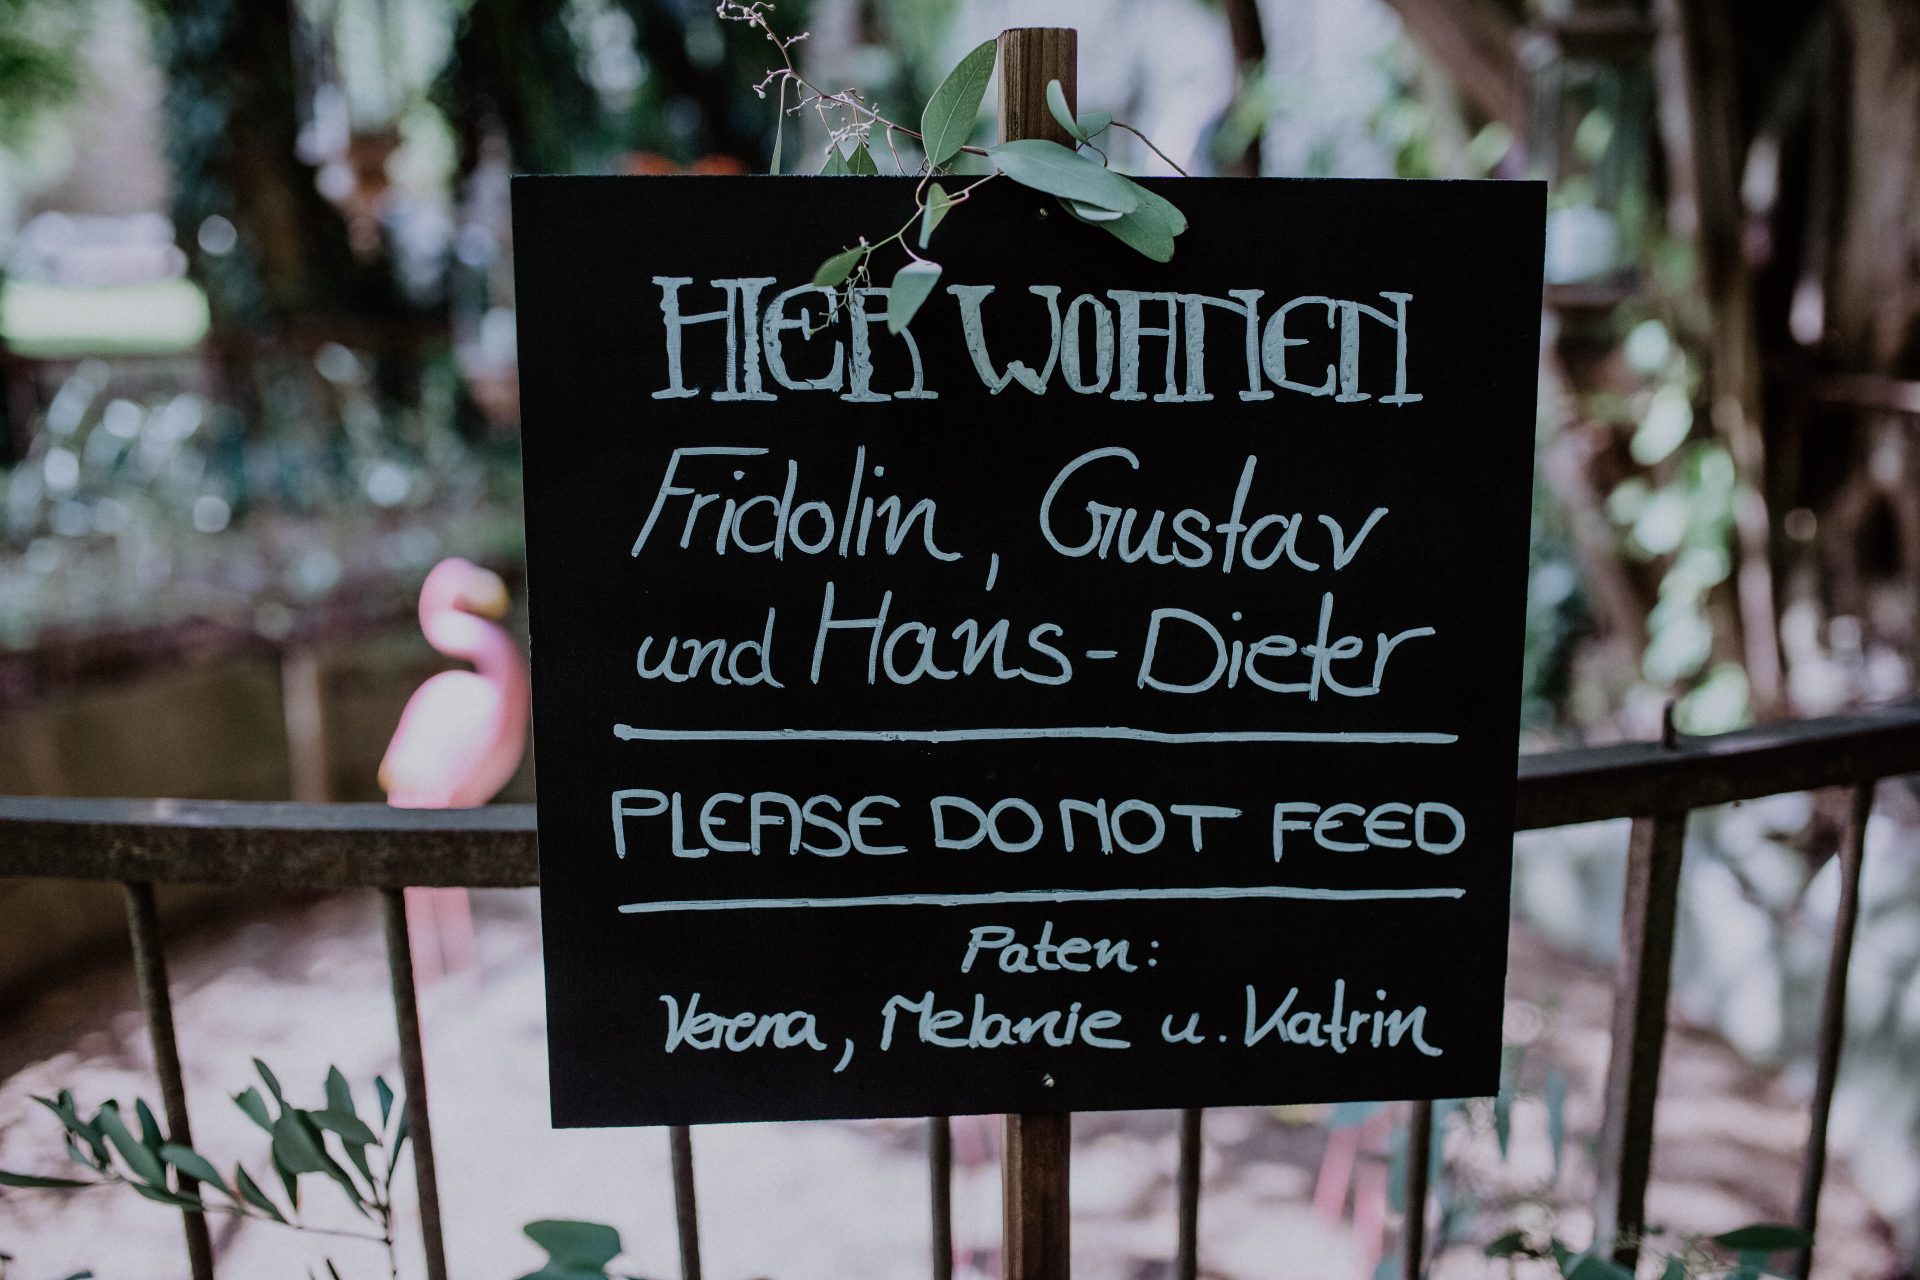 HIER WOHNEN
Fridolin, Gustav
und Hans-Dieter
PLEASE DO NOT FEED
Paten:
Verena, Melanie u. Katrin